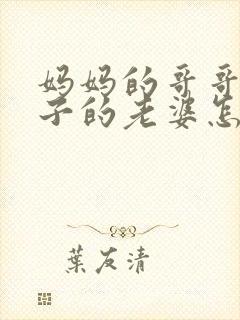 妈妈的哥哥
子的老婆怎
葉友清